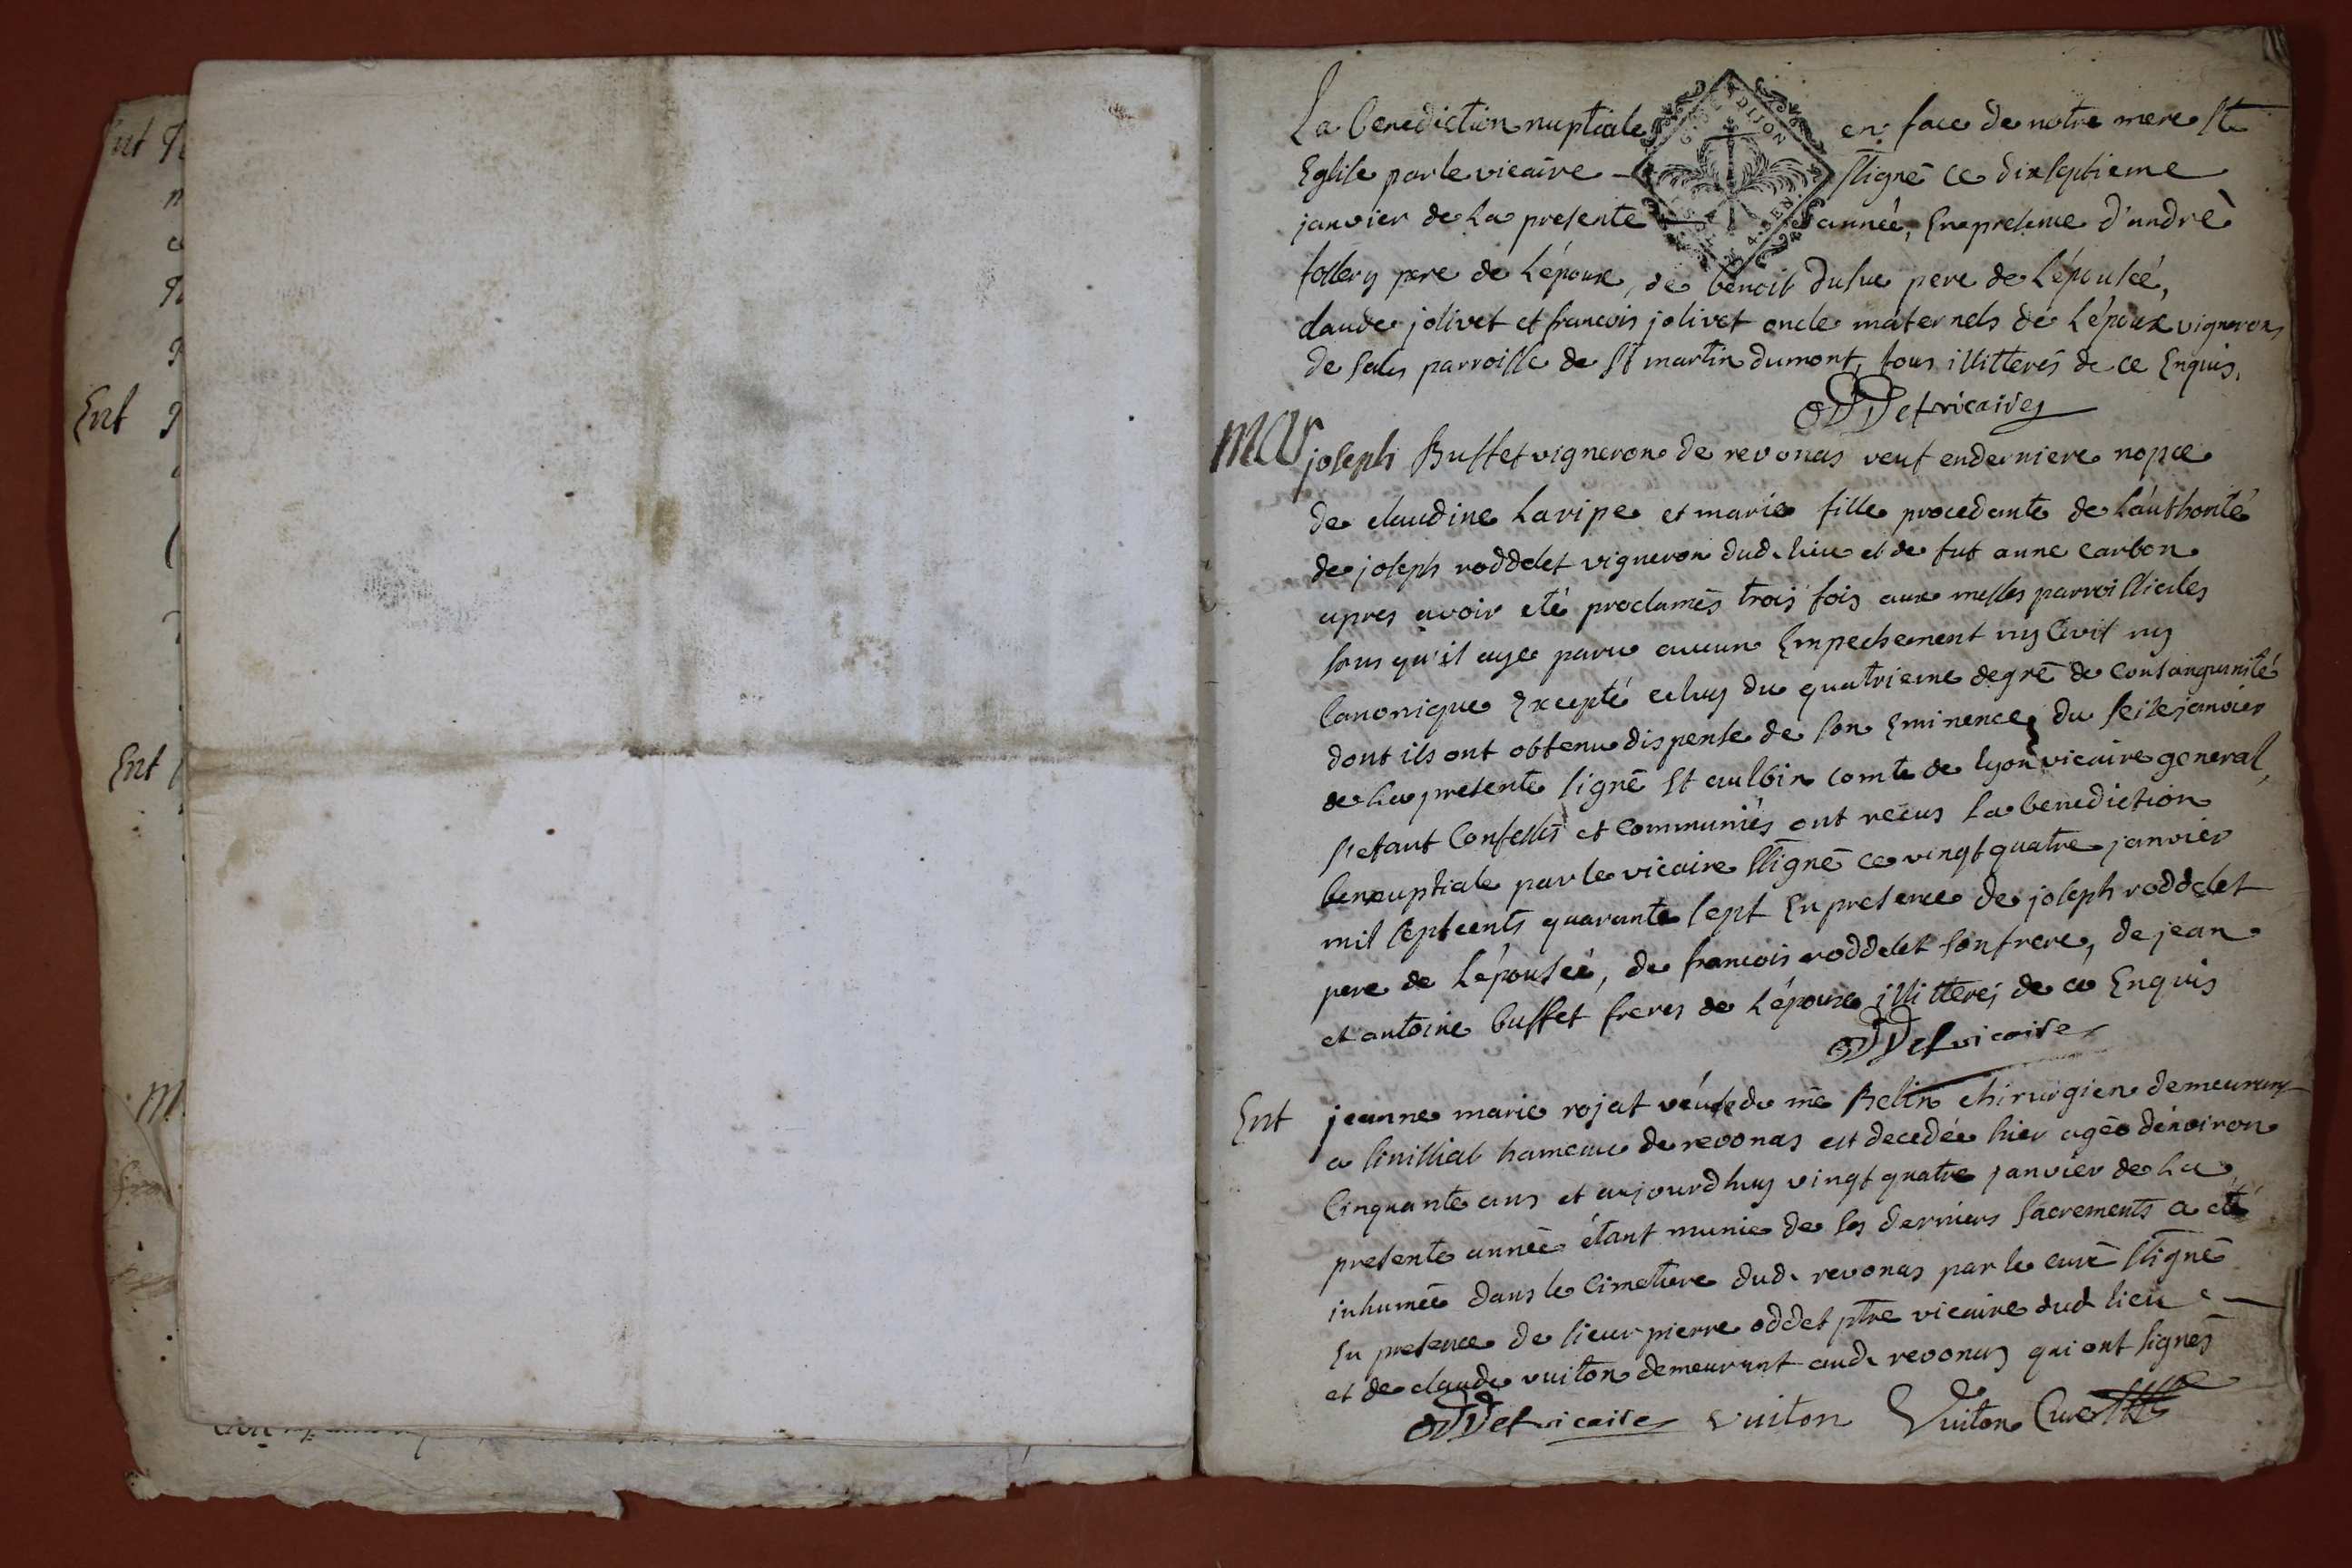 Ent
Ent
Ent
m
La benediction nuptiale en face de notre mere Ste
DIJON
Eglise par le vicaire ssigné ce dixseptieme
janvier de la presente année, En presence d'andré
pere de l'époux, de benoit dufue pere de l'épousée,
claude jolivet et francois jolivet oncle maternels de l'époux vignerons
de sales parroisse de St martin dumont, tous illitterés de ce Enquis,
oDDet vicaire
mar joseph Buffet vigneron de revonas veuf en derniere nopce
de claudine Laripe et marie fille procedante de l'authorité
de joseph roddet vigneron dud. lieu et de fut anne carbon
apres avoir eté proclamés trois fois aux messes parroissiales
sans qu'il aye paru aucun Empechement ny Civil ny
Canonique Excepté celuy du quatrieme degré de Consanguinité
dont ils ont obtenu dispense de son Eminence du seize janvier
de la presente signé St aulbin comte de lyon vicaire general,
s'etant Confessés et Communiés ont recus la benediction
benuptiale par le vicaire ssigné ce vingt quatre janvier
mil septcents quarante sept En presence de joseph roddelet
pere de l'épousée, de francois roddelet son frere, de jean
et antoine buffet freres de l'époux illitterés de ce Enquis
oDDet vicaire
Ent jeanne marie rojat veuve de me Belin chirurgien demeurant
a Sinissiat hameau de revonas est decedée hier agée d'environ
Cinquante ans et aujourdhuy vingt quatre janvier de la
presente année étant munie de ses derniers sacrements a eté
inhumée dans le Cimetiere dud. revonas par le curé ssigné
En presence de sieur pierre oddet ptre vicaire dud lieu
et de claude vuiton demeurant aud. revonas qui ont signés
oDDet vicaire vuiton Vuiton Curé